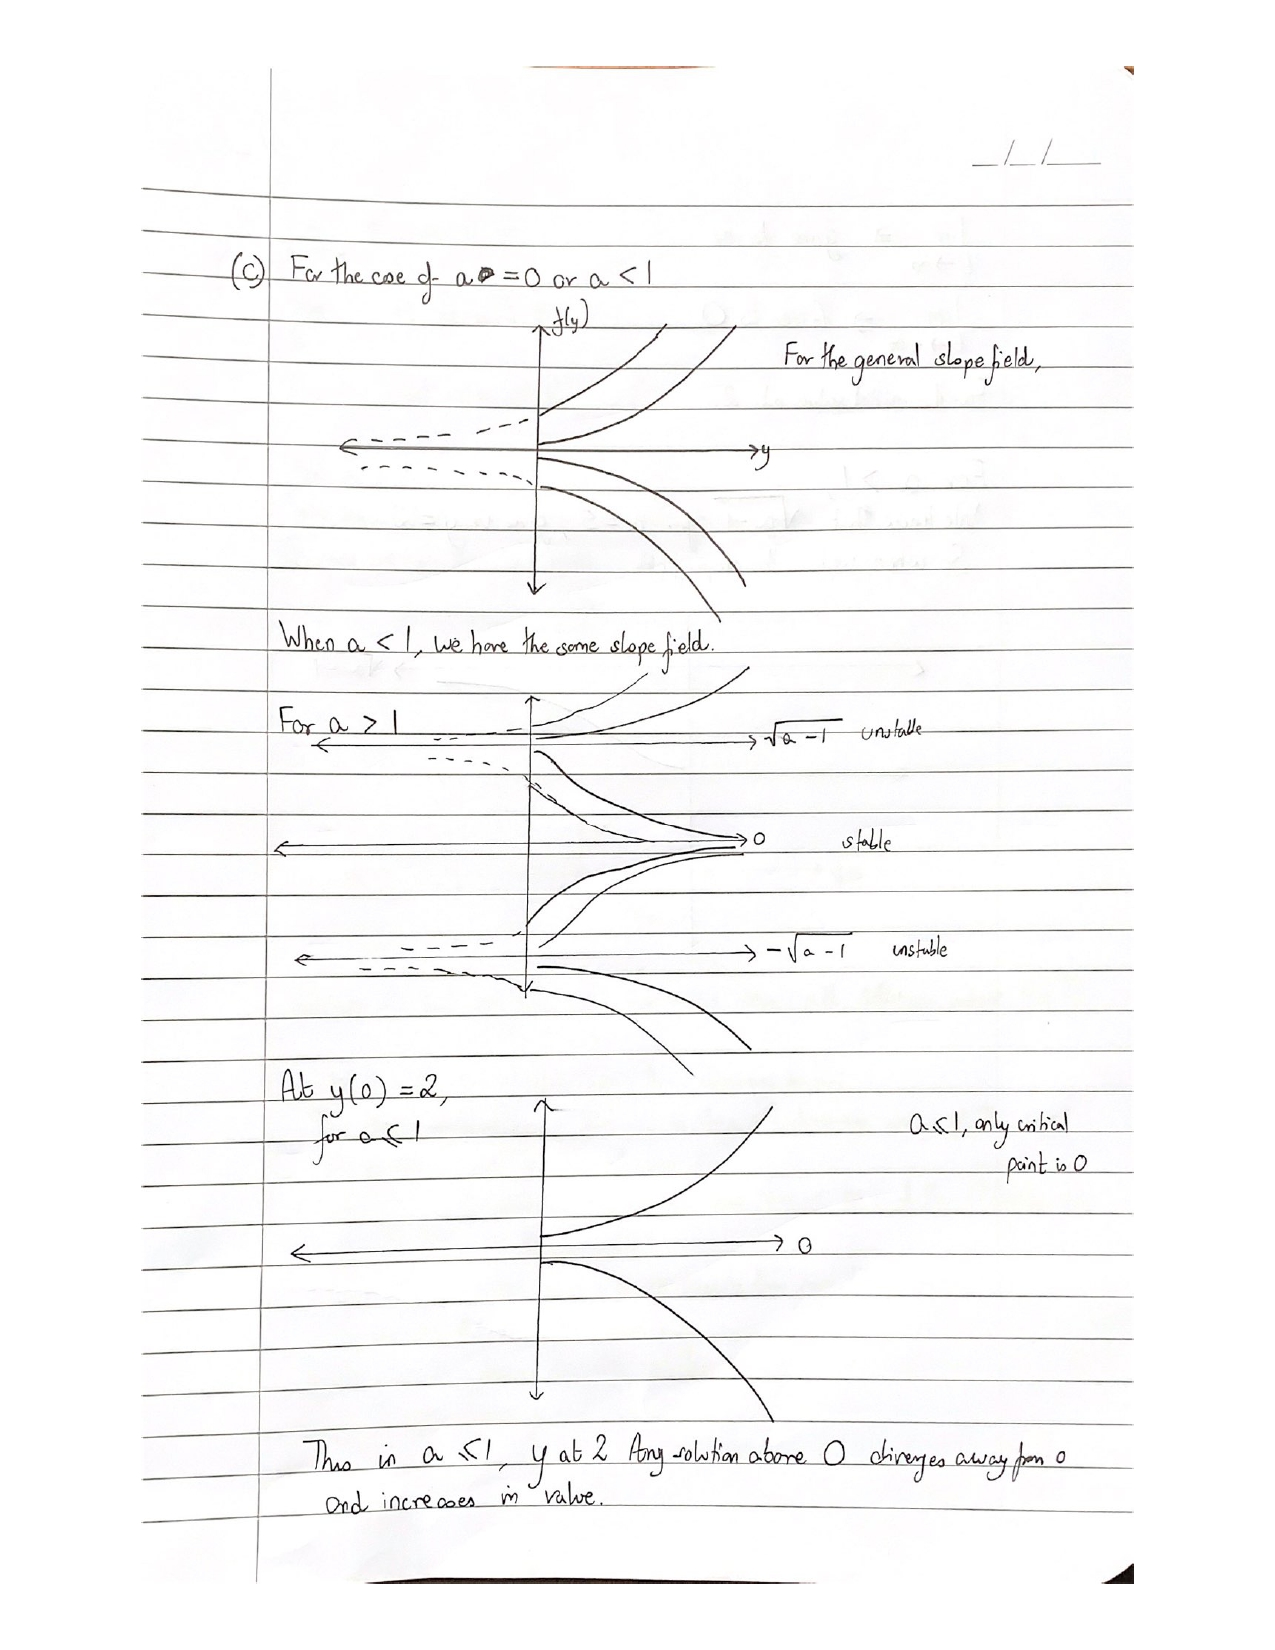 _/_/__
(c) For the case of a = 0 or a < 1
f(y)
For the general slope field,
y
When a < 1, we have the same slope field.
For a > 1
√a-1 unstable
0 stable
-√a-1 unstable
At y(0) = 2,
for a ≤ 1
a ≤ 1, only critical
point is 0
0
Thus in a ≤ 1, y at 2 Any solution above 0 diverges away from 0
and increases in value.